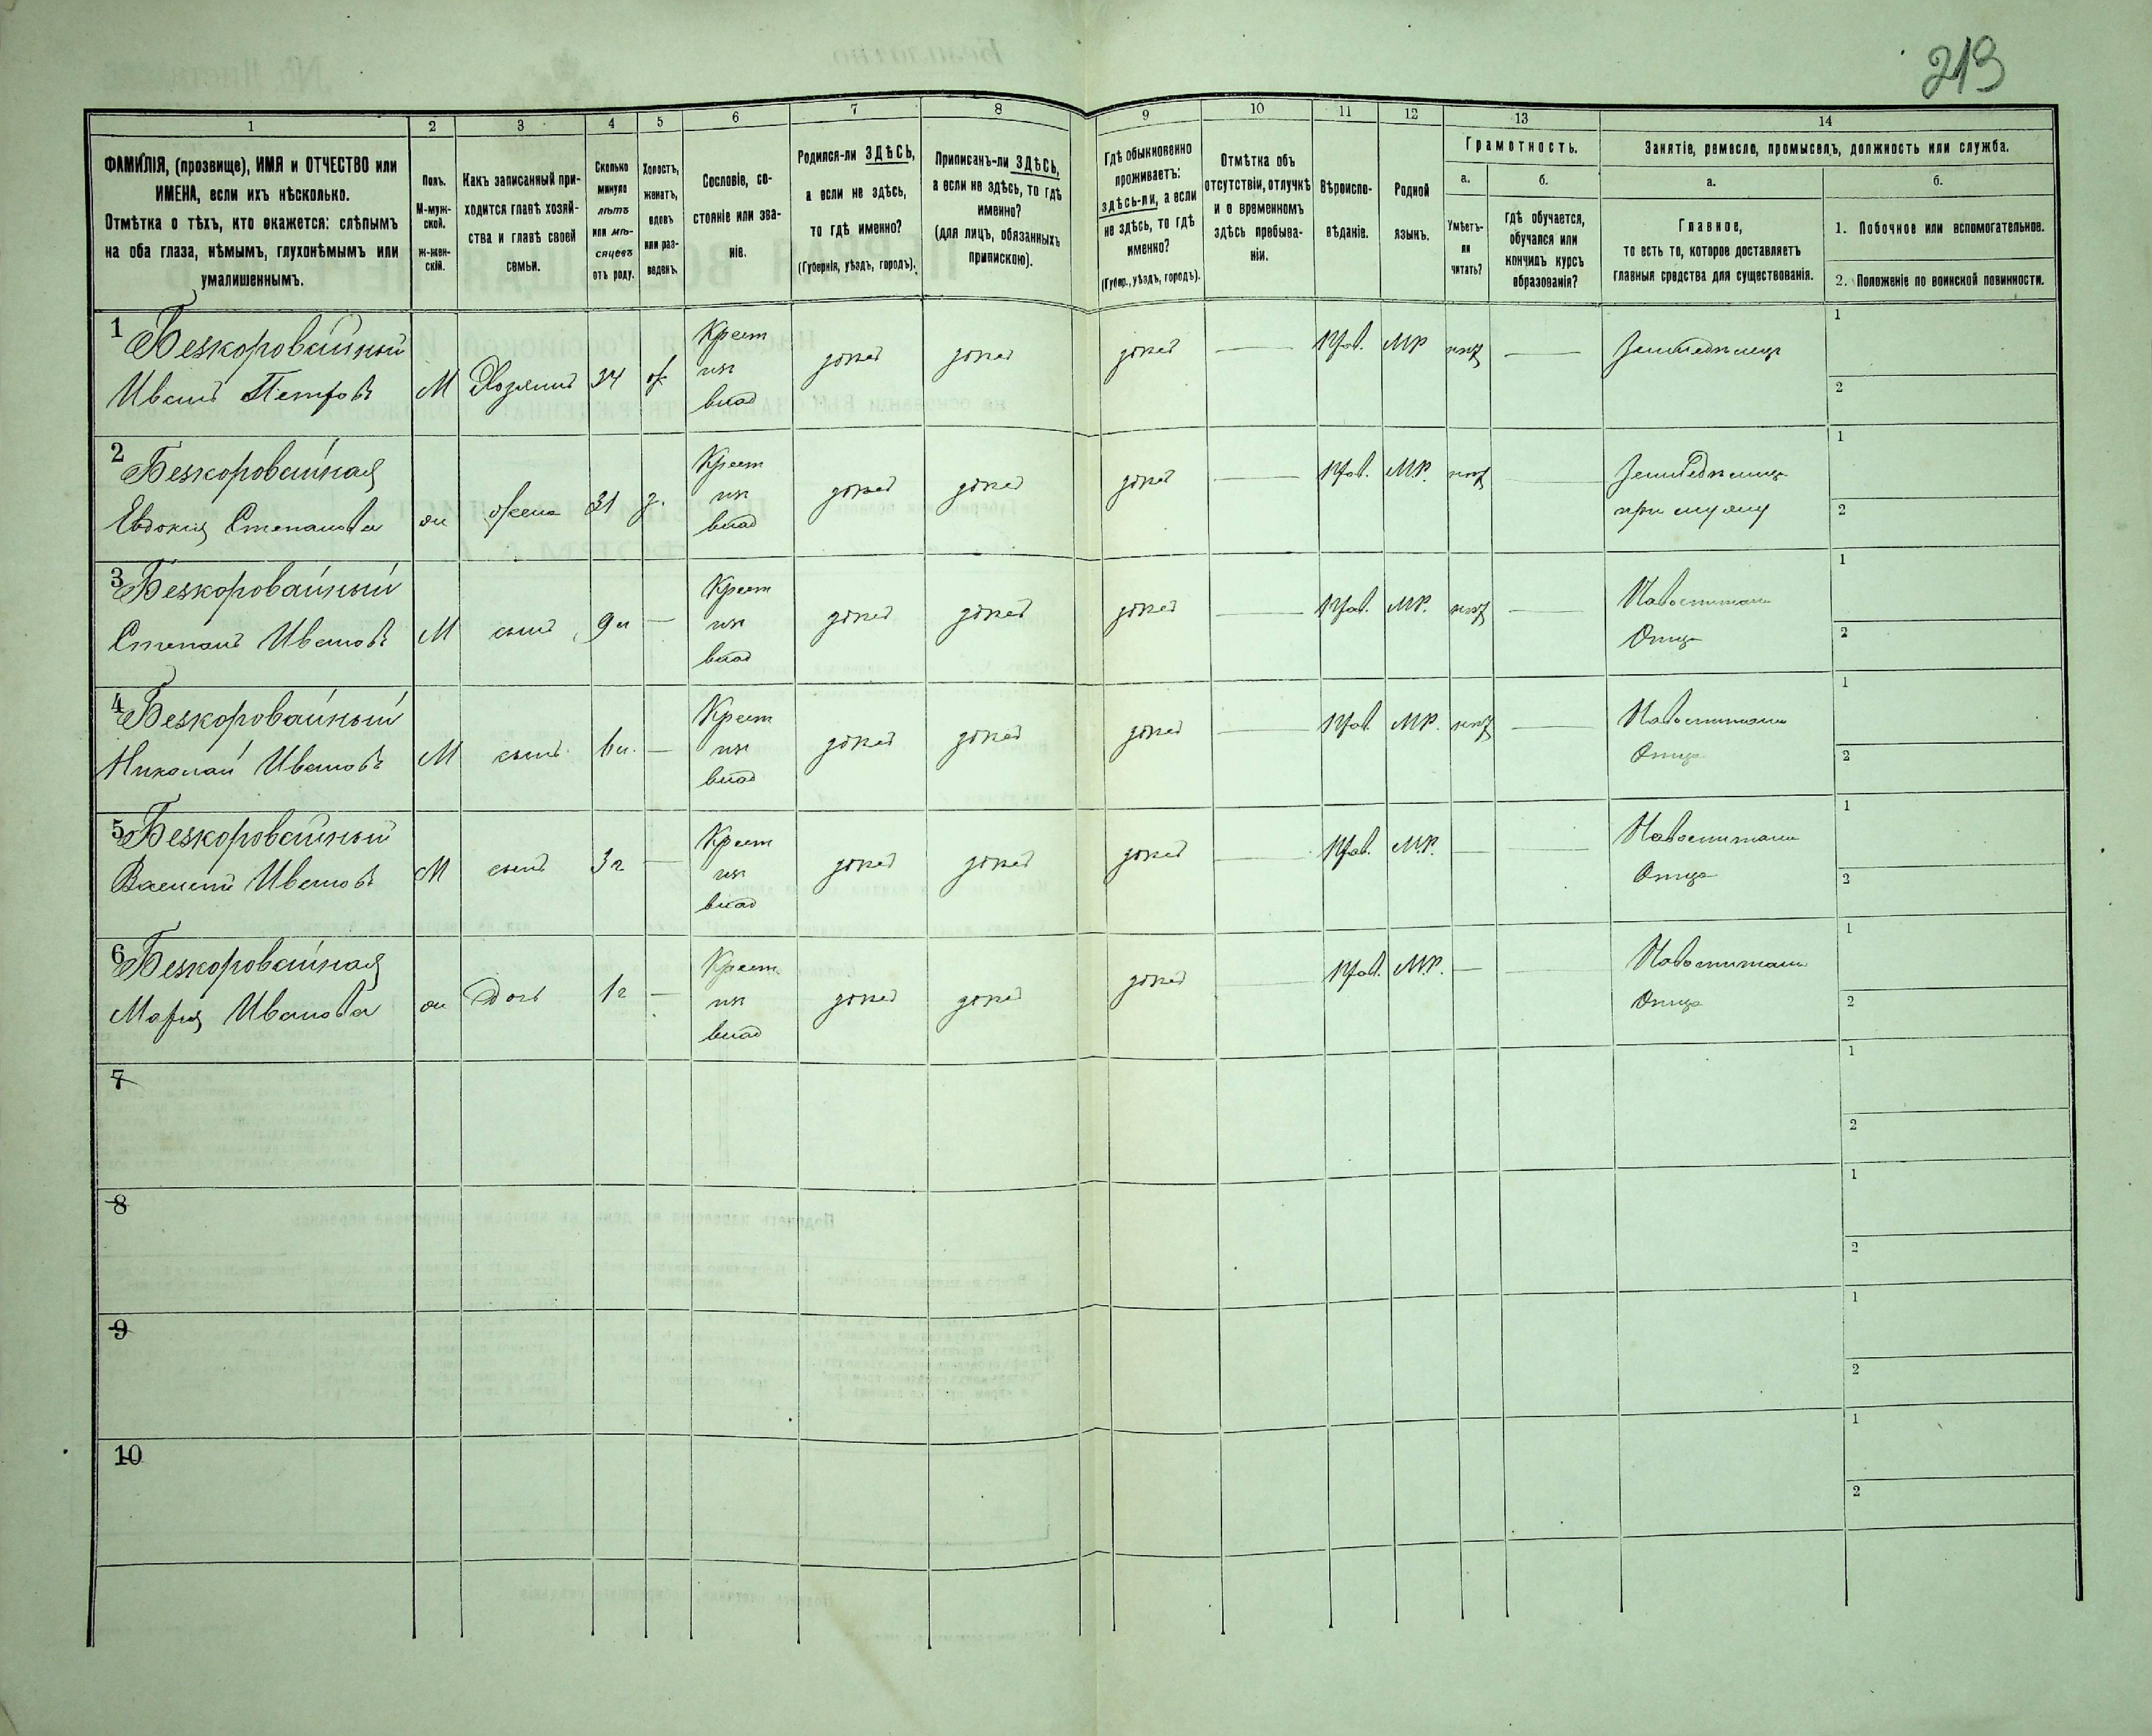 213
1
2
3
4
5
6
7
8
9
10
11
12
13
14
ФАМИЛІЯ, (прозвище), ИМЯ и ОТЧЕСТВО или
ИМЕНА, если ихъ нѣсколько.
Отмѣтка о тѣхъ, кто окажется: слѣпымъ
на оба глаза, нѣмымъ, глухонѣмымъ или
умалишеннымъ.
Полъ.
М-муж-
ской.
ж-жен-
скій.
Какъ записанный при-
ходится главѣ хозяй-
ства и главѣ своей
семьи.
Сколько
минуло
лѣтъ
или мѣ-
сяцевъ
отъ роду.
Холостъ,
женатъ,
вдовъ
или раз-
веденъ.
Сословіе, со-
стояніе или зва-
ніе.
Родился-ли ЗДѢСЬ,
а если не здѣсь,
то гдѣ именно?
(Губернія, уѣздъ, городъ).
Приписанъ-ли ЗДѢСЬ,
а если не здѣсь, то гдѣ
именно?
(для лицъ, обязанныхъ
припискою).
Гдѣ обыкновенно
проживаетъ:
здѣсь-ли, а если
не здѣсь, то гдѣ
именно?
(Губер., уѣздъ, городъ).
Отмѣтка объ
отсутствіи, отлучкѣ
и о временномъ
здѣсь пребыва-
ніи.
Вѣроиспо-
вѣданіе.
Родной
языкъ.
Грамотность.
а.
Умѣетъ-
ли
читать?
б.
гдѣ обучается,
обучался или
кончилъ курсъ
образованія?
Занятіе, ремесло, промыселъ, должность или служба.
а.
Главное,
то есть то, которое доставляетъ
главныя средства для существованія.
б.
1. Побочное или вспомогательное.
2. Положеніе по воинской повинности.
1 Безкоровайный
Иванъ Петровъ
М Хозяинъ 34
Крест
изъ
влад
здѣсь здѣсь здѣсь
Прав. МР нѣтъ
Земледѣлецъ
1
2
2 Безкоровайная
Евдокія Степанова
ж жена 31 з.
Крест
изъ
влад
здѣсь здѣсь здѣсь
Прав. МР. нѣтъ
при мужу
1
2
3 Безкоровайный
Степанъ Ивановъ
М сынъ 9л
Крест
изъ
влад
здѣсь здѣсь здѣсь
Прав. МР. нѣтъ
Отца
1
2
4 Безкоровайный
Николай Ивановъ
М сынъ
Крест
изъ
влад
здѣсь здѣсь здѣсь
Прав. МР. нѣтъ
Отца
1
2
5 Безкоровайный
Василій Ивановъ
М сынъ 3г
Крест
изъ
влад
здѣсь здѣсь здѣсь
Прав. МР.
Отца
1
2
6 Безкоровайная
Марія Иванова
ж Дочь 1г
Крест.
изъ
влад
здѣсь здѣсь здѣсь
Прав. МР.
Отца
1
2
7
1
2
8
1
2
9
1
2
10
1
2